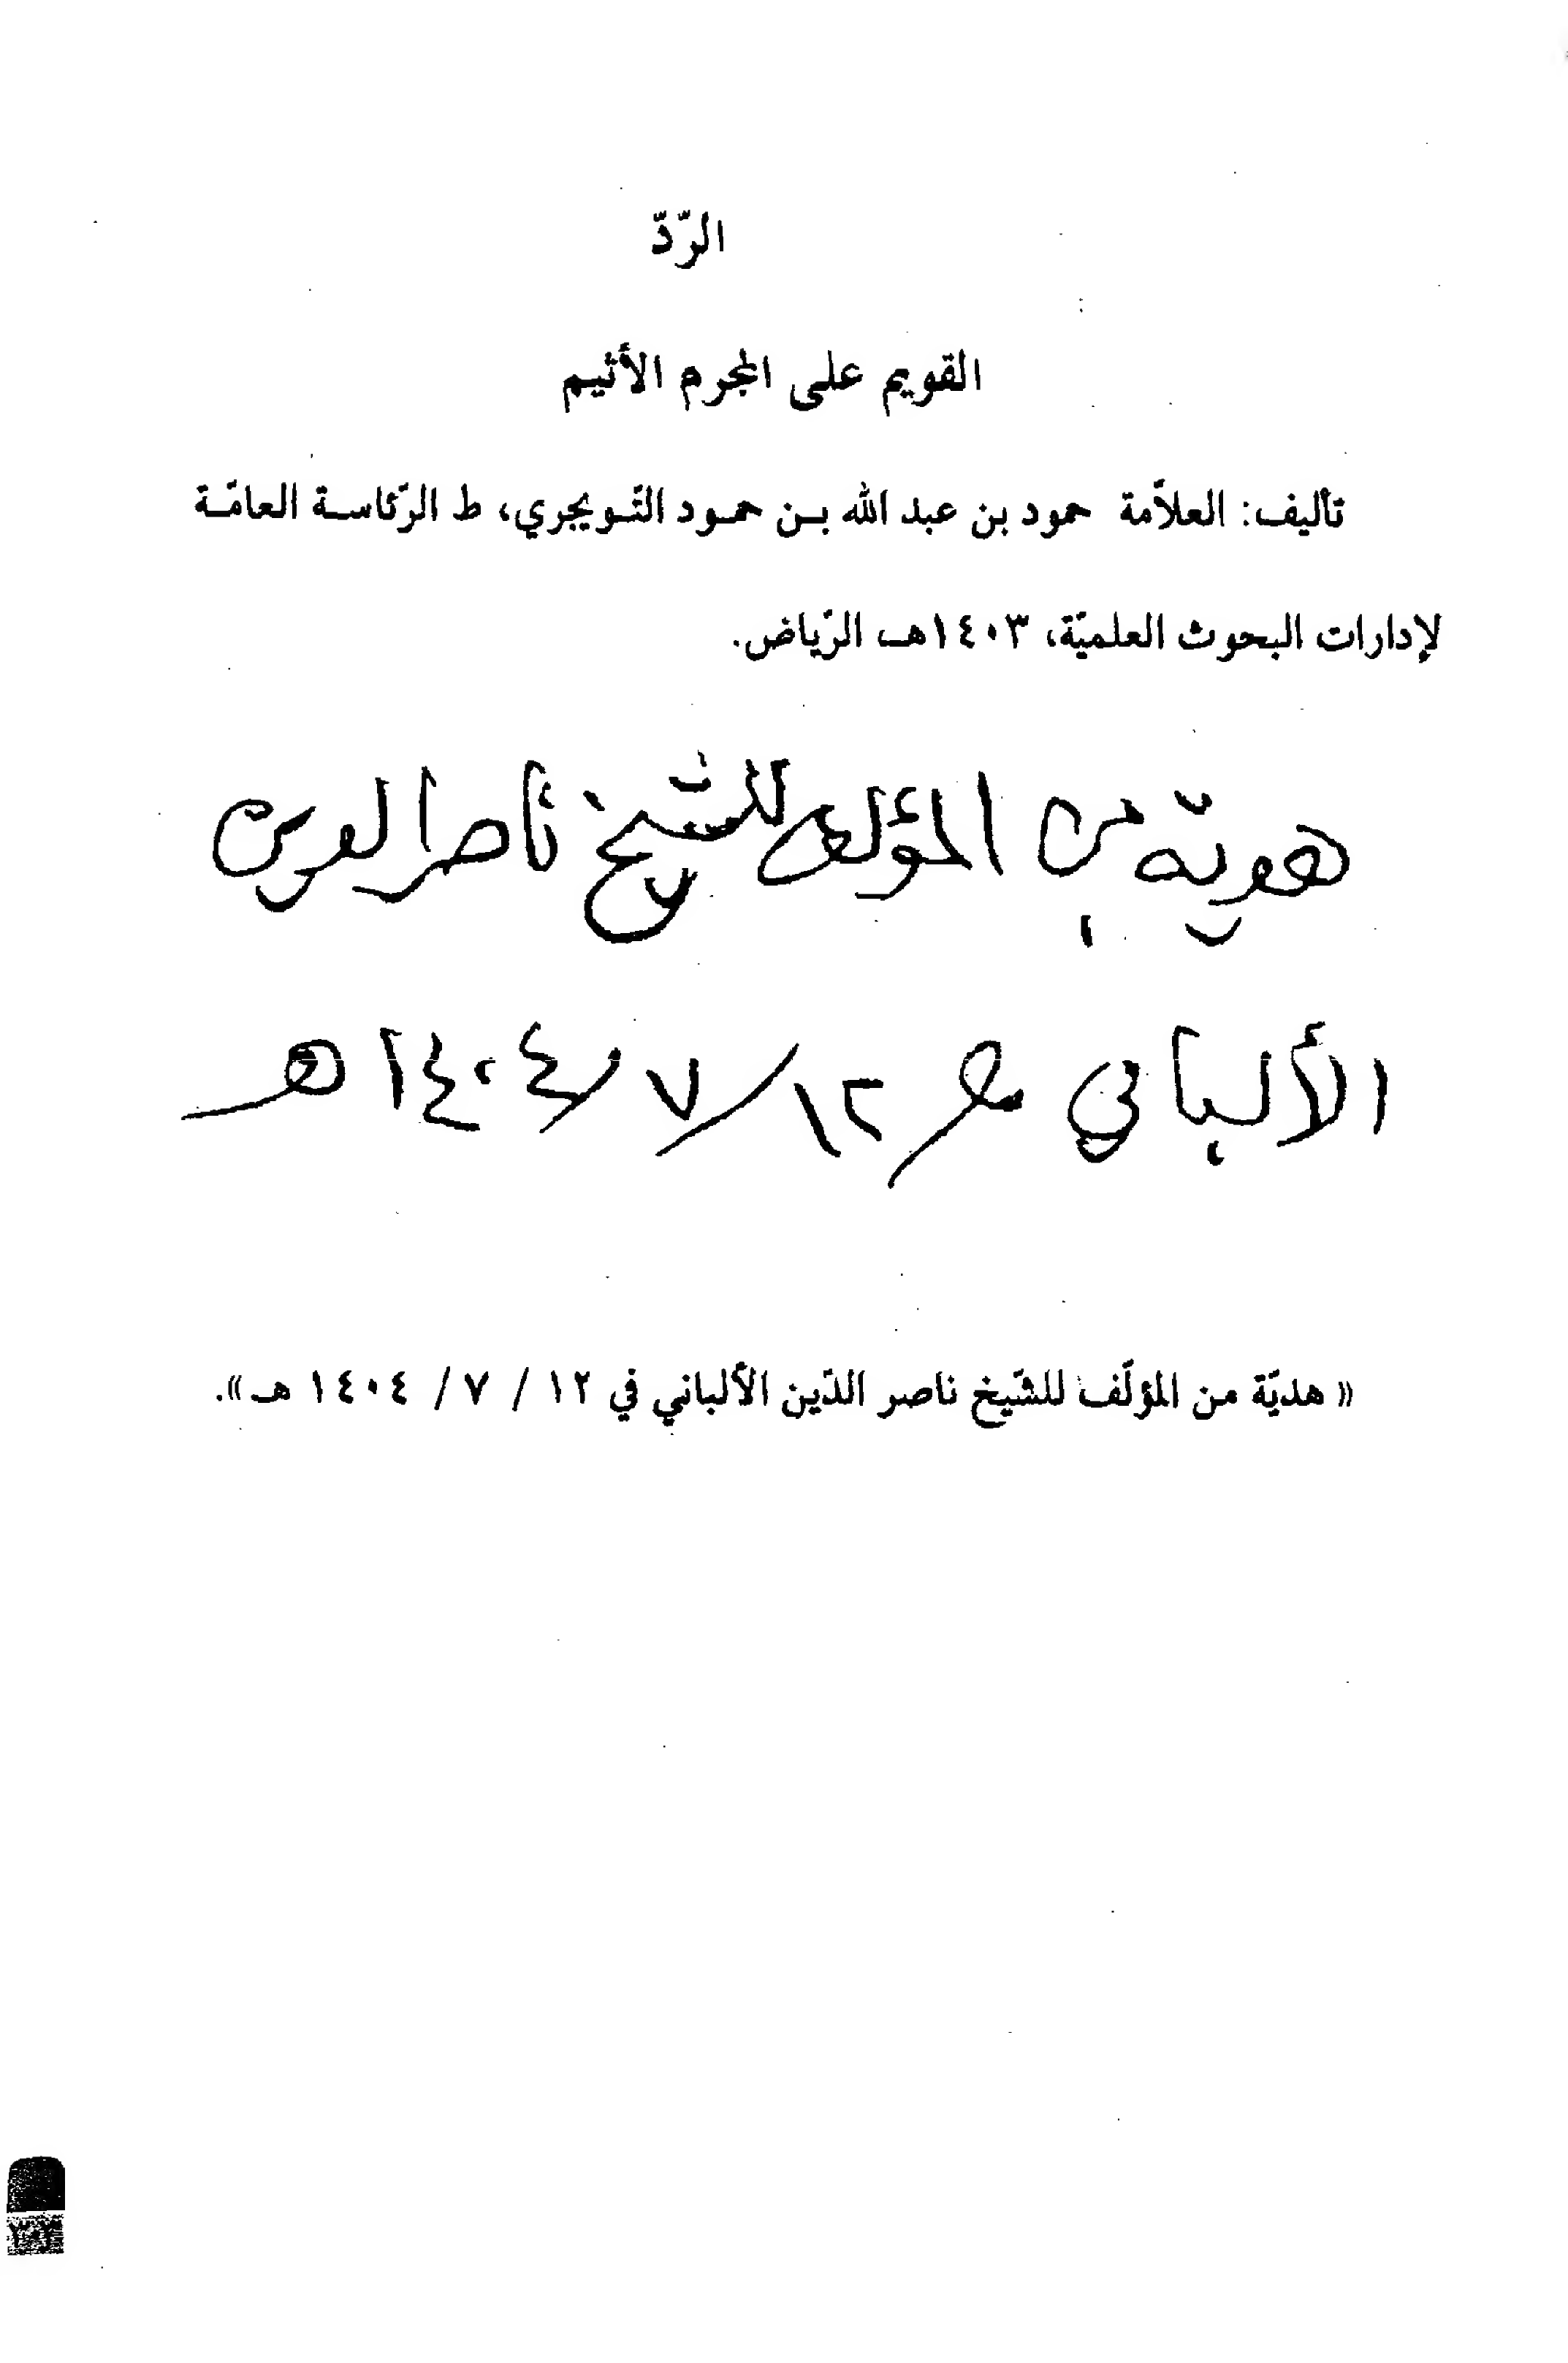 الرّدّ
القويم على المجرم الأثيم
تأليف: العلاّمة حمود بن عبد الله بـن حمـود التّـويجري، ط الرّئاسـة العامّـة
لإدارات البحوث العلميّة، ١٤٠٣هـ الرّياض.
هدية من المؤلف للشيخ ناصر الدين
الألباني في ١٢/ ٧/ ١٤٠٤هـ
« هديّة من المؤلّف للشّيخ ناصر الدّين الألباني في ١٢ / ٧ / ١٤٠٤ هـ».